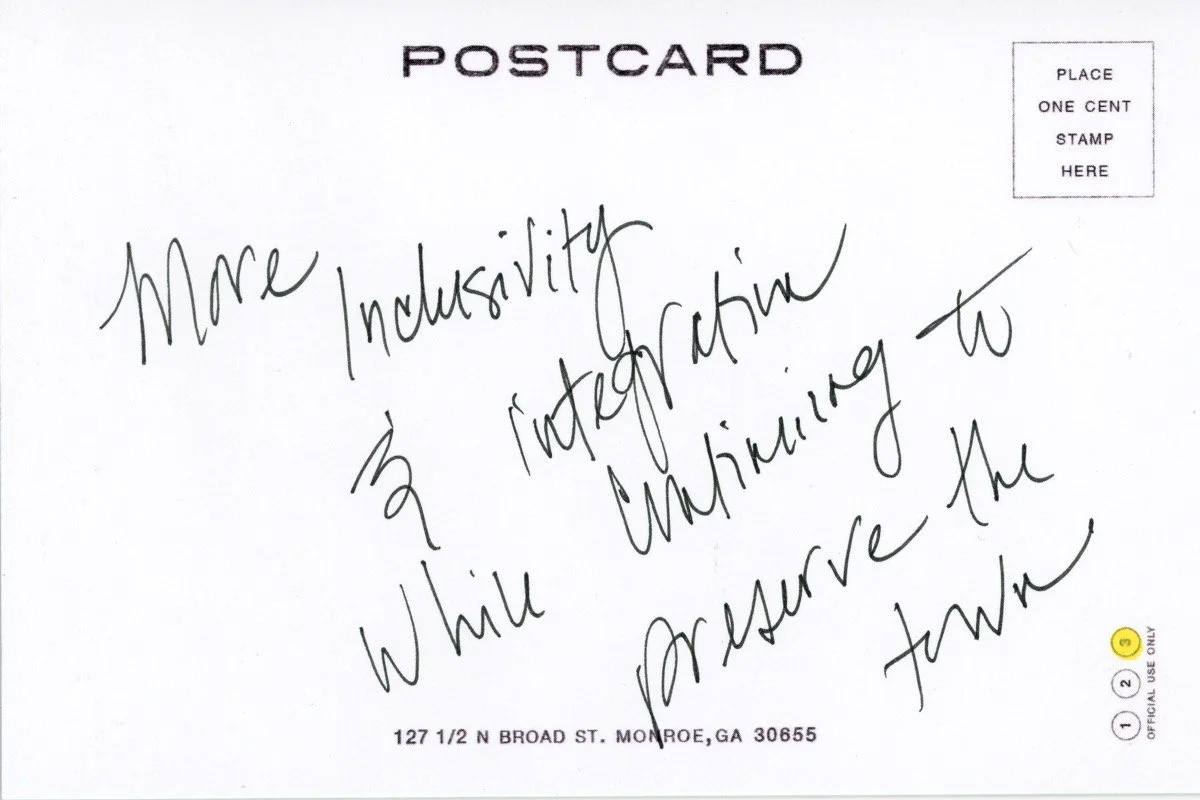 POSTCARD
PLACE
ONE CENT
STAMP
HERE
More Inclusivity
& integration
While continuing to
preserve the
town
127 1/2 N BROAD ST. MONROE, GA 30655
1 2 3
OFFICIAL USE ONLY